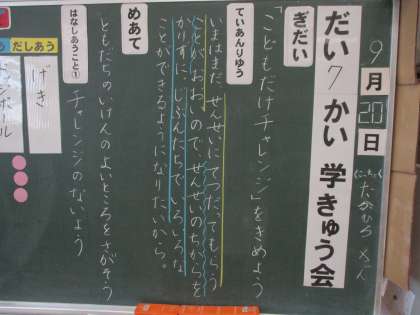 9月20日
だい7かい 学きゅう会
ぎだい
「こどもだけチャレンジ」をきめよう
ていあんりゆう
いまはまだ、せんせいにてつだってもらう
ことがおおいので、せんせいのちからを
かりずに、じぶんたちで、いろいろな
ことができるようになりたいから。
めあて
ともだちのいけんのよいところをさがそう
はなしあうこと①
チャレンジのないよう
だしあう
げき
ボール